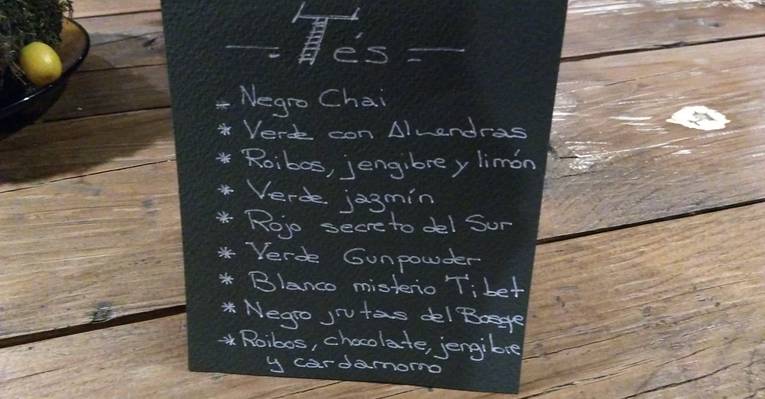 Tés
- Negro Chai
* Verde con Almendras
* Roibos, jengibre y limón
* Verde jazmín
* Rojo secreto del Sur
* Verde Gunpowder
* Blanco misterio Tibet
* Negro frutas del Bosque
* Roibos, chocolate, jengibre
y cardamomo